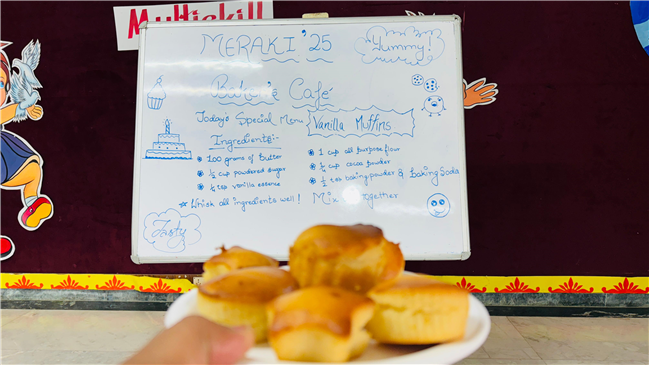 Multiskill
MERAKI'25
Yummy!
Baker's Café
Today's Special Menu Vanilla Muffins
Ingredients:-
100 grams of butter
½ cup powdered sugar
¼ tsp vanilla essence
1 cup all purpose flour
¼ cup cocoa powder
½ tsp baking powder & baking Soda
Whisk all ingredients well! Mix together
Tasty